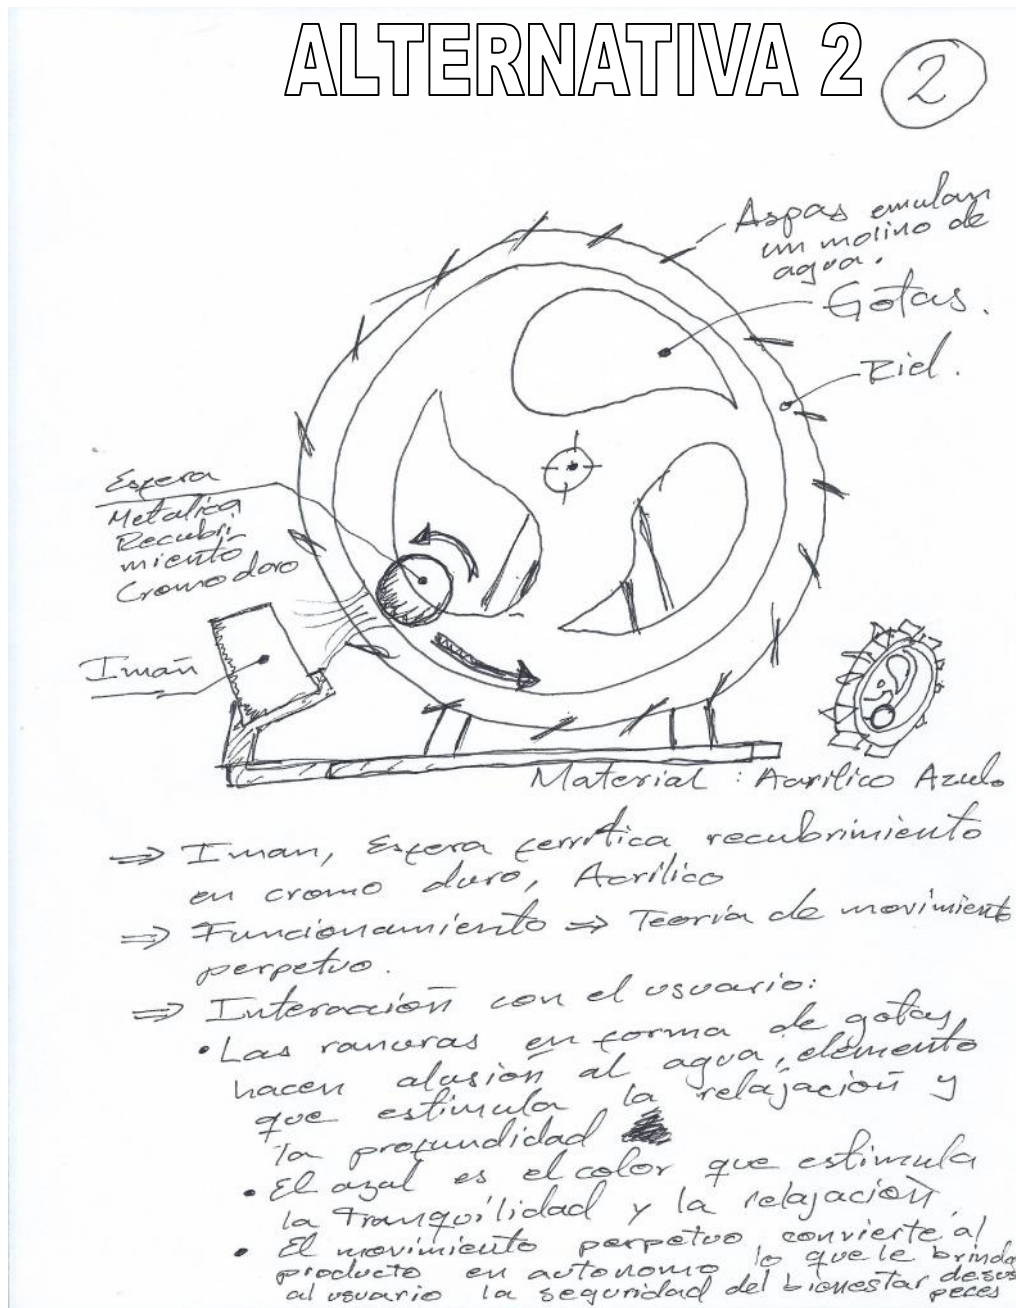 ALTERNATIVA 2
2
Aspas emulan
un molino de
agua.
Gotas.
Riel.
Esfera
Metalica
Recubri-
miento
Cromo duro
Iman
Material : Acrilico Azul.
⇒ Iman, Esfera ferritica recubrimiento
en cromo duro, Acrilico
⇒ Funcionamiento ⇒ Teoría de movimiento
perpetuo.
⇒ Interacción con el usuario:
• Las ranuras en forma de gotas,
hacen alusión al agua, elemento
que estimula la relajación y
la profundidad
• El azul es el color que estimula
la tranquilidad y la relajación.
• El movimiento perpetuo convierte al
producto en autonomo lo que le brinda
al usuario la seguridad del bienestar de sus
peces